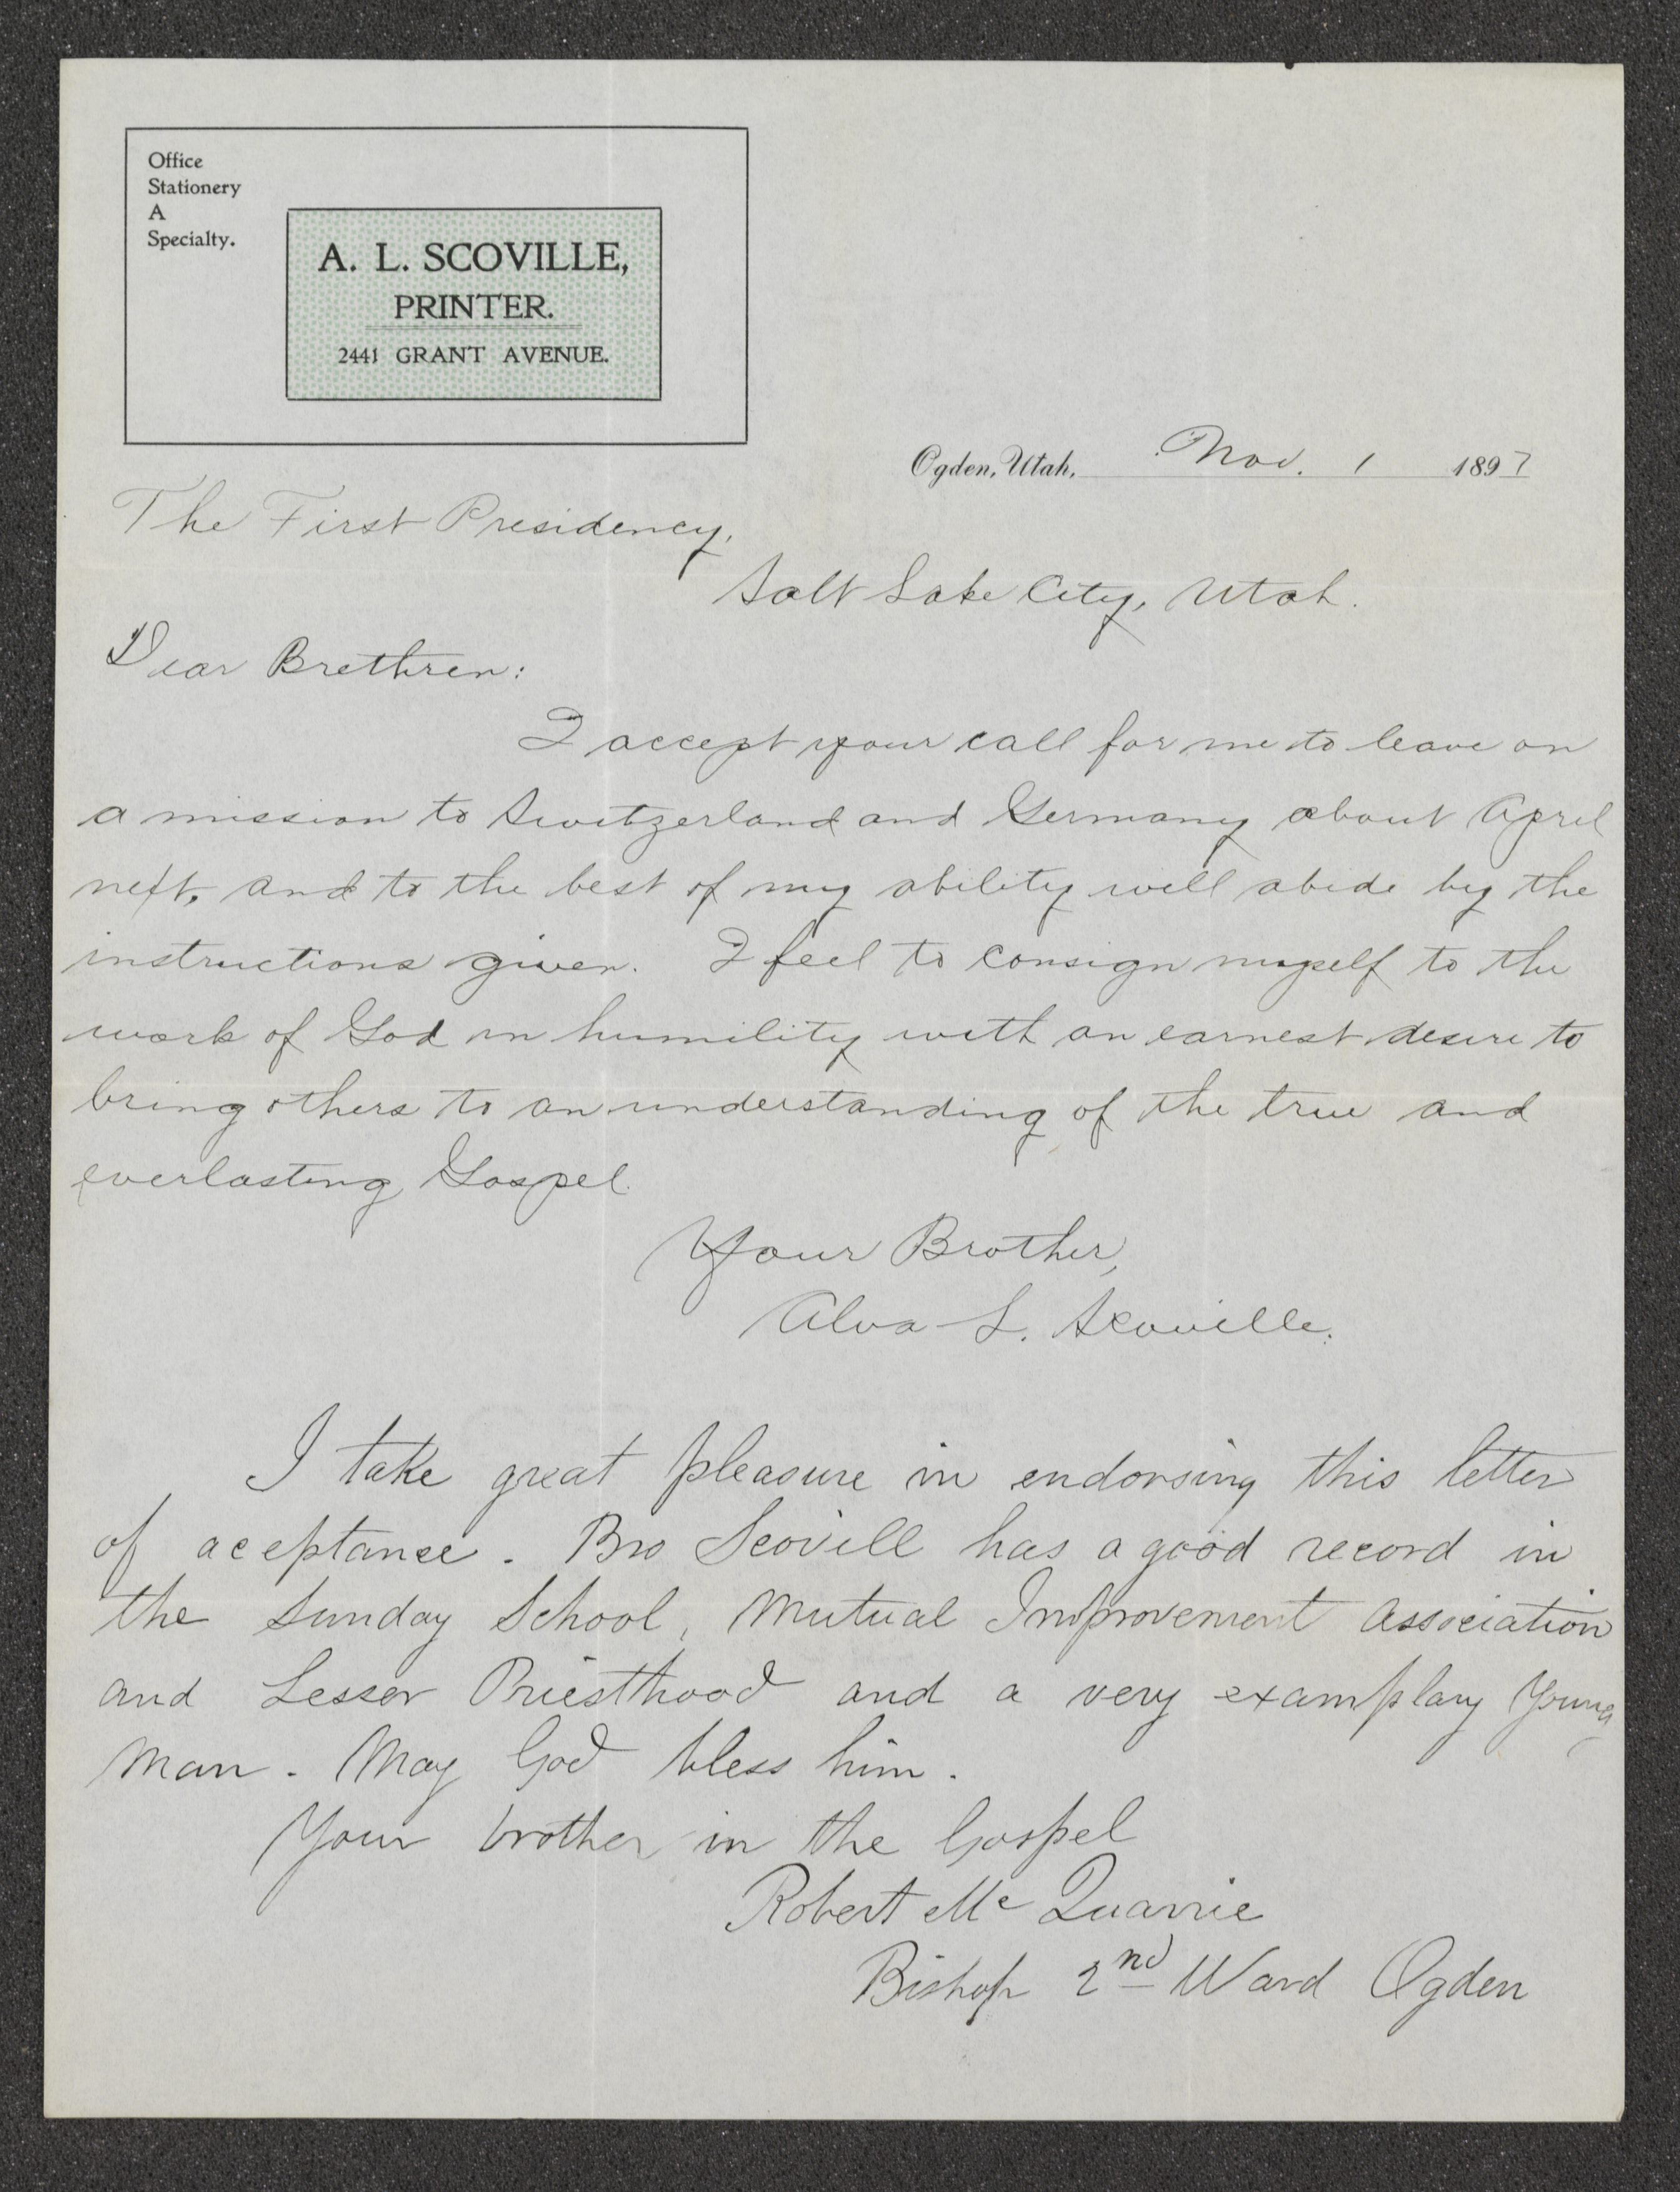 Office
Stationery
A
Specialty.
A. L. SCOVILLE,
PRINTER.
2441 GRANT AVENUE.
Ogden, Utah, Nov. 1 1897
The First Presidency,
Salt Lake City, Utah.
Dear Brethren:
I accept your call for me to leave on
a mission to Switzerland and Germany about April
next, and to the best of my ability will abide by the
instructions given. I feel to consign myself to the
work of God in humility with an earnest desire to
bring others to an understanding of the true and
everlasting Gospel.
Your Brother,
Alva L. Scoville.
I take great pleasure in endorsing this letter
of aceptance. Bro Scovill has a good record in
the Sunday School, Mutual Improvement Association
and Lesser Priesthood and a very examplary Young
Man. May God bless him.
Your brother in the Gospel
Robert Mc Quarrie
Bishop 2nd Ward Ogden